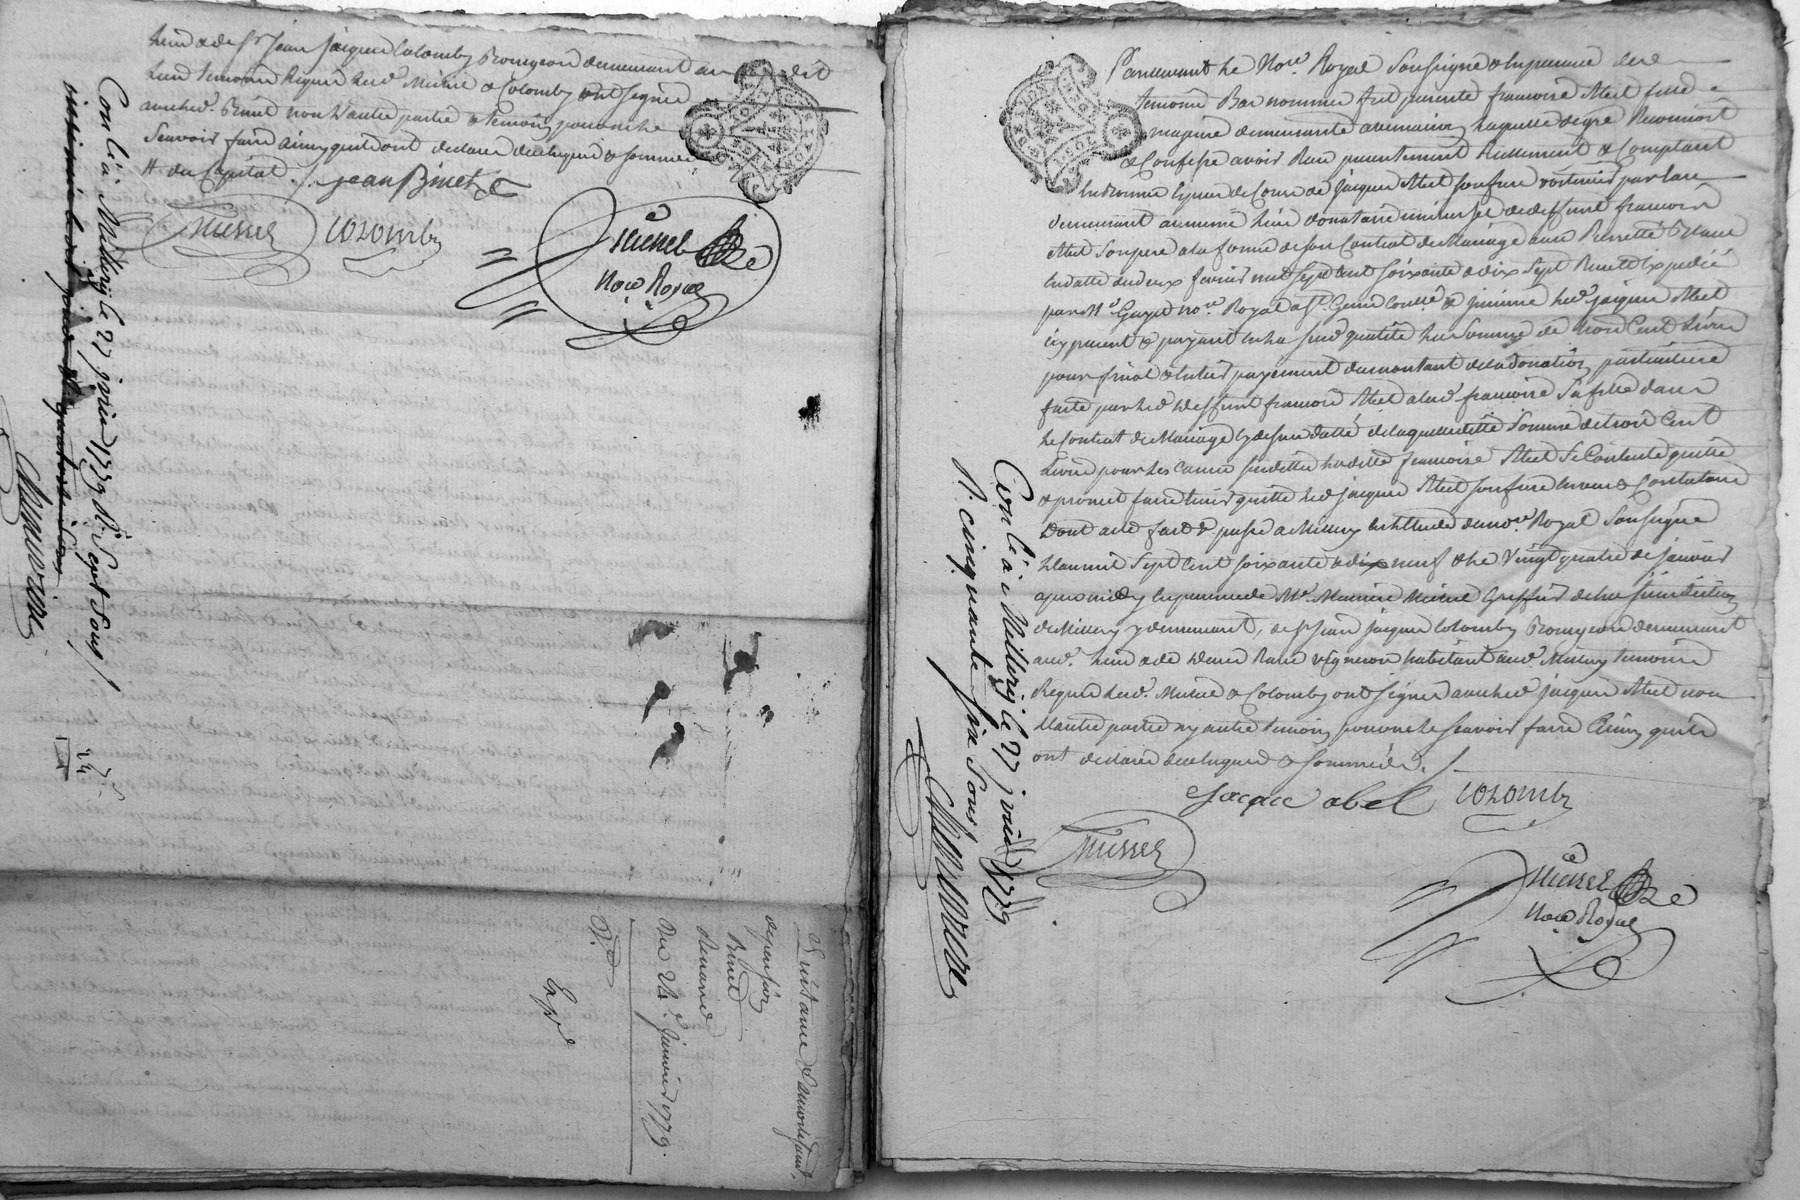 lieu & de Sr Jean Jacques Colomby Bourgeois demeurant au dit
lieu temoins Requis led. Michel & Colomby ont signés
avec led. Binet non l'autre partie & temoin pour ne le
Scavoir faire ainsy qu'ils ont declaré de ce enquis & sommés
# du Capital ./. jean Binet
Michel Colomby
Michel
Nore Royal
Conlé à Millery le 27 janvier 1779 R. Sept Sous
Quittance & amortissement
Binet
du 24e Janvier 1779
Expé
Pardevant le Nore. Royal Soussigné & en presence des
temoins Bas nommés fut presente francoise Abel fille
majeure demeurante a Laquelle de gré Reconnoit
& Confesse avoir Recu presentement Réellement & Comptant
en Bonnes Especes de Cours de Jacques Abel son frere
demeurant au meme lieu donataire universel de deffunt francois
Abel Son pere a la forme de son Contrat de Mariage avec Pierrette
en datte du deux fevrier mil sept Cent soixante & dix Sept Recu & Expedié
par Me nore. Royal a St. Genis & led. jacques Abel
icy present & payant en la susd. qualité la Somme de trois Cent Livres
pour final & entier payement du montant de la donation particuliere
faite par led. deffunt francois Abel a lad. francoise Sa fille dans
le Contrat de Mariage cy dessus datté de laquelle ditte Somme de trois Cent
Livres pour les Causes susdittes laditte francoise Abel Se Contente quitte
& promet faire tenir quitte led. jacques Abel son frere envers & Contre tous
Dont acte fait & passé a Millery en l'Etude du nore. Royal Soussigné
L'an mil Sept Cent soixante & dix neuf & le Vingt quatre de janvier
apres midy en presence de Me. Michel Greffier de la jurisdiction
de Millery y demeurant, de Sr Jean Jacques Colomby Bourgeois demeurant
aud. lieu & de vigneron habitant aud. Millery temoins
Requis led. Michel & Colomby ont signés avec led. jacques Abel non
L'autre partie ny autre temoin pour ne le scavoir faire Ainsy qu'ils
ont declaré de ce enquis & sommés ./.
Jacque abel Colomby
Michel
Michel
Nore Royal
Conlé à Millery le 27 janvier 1779
R. cinquante six Sous